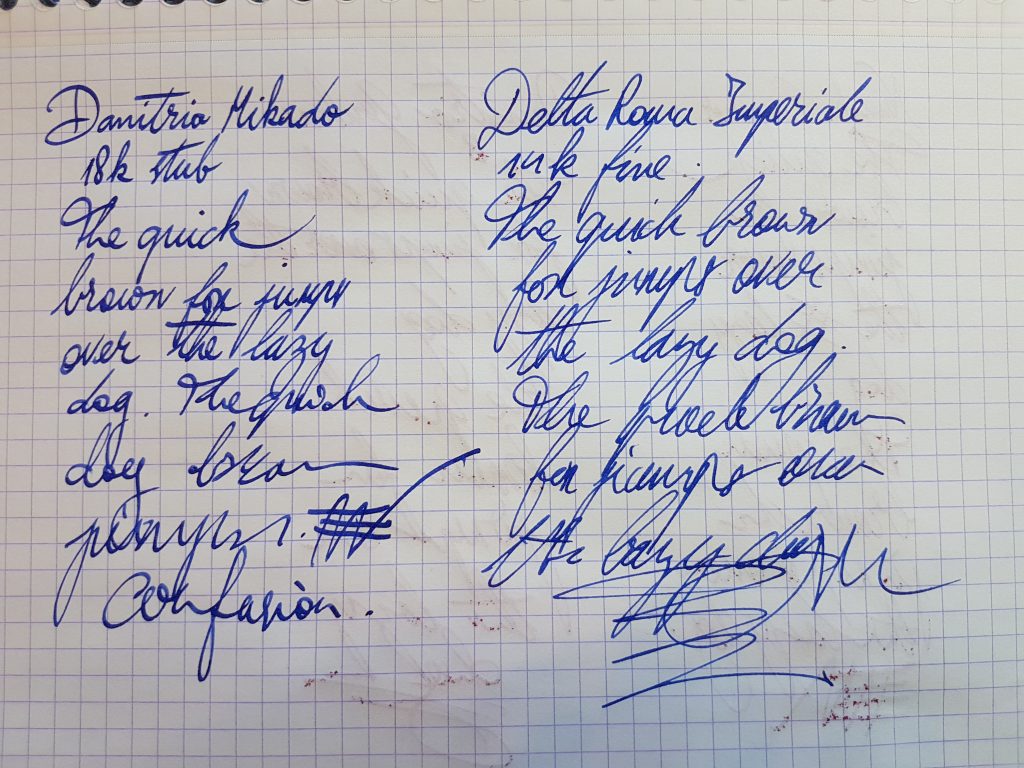 Danitrio Mikado
18k stub
The quick
brown fox jumps
over the lazy
dog. The quick
dog brown
jumps.
Confusion.
Delta Roma Imperiale
14k fine.
The quick brown
fox jumps over
the lazy dog.
The brown
fox jumps over
the lazy dog